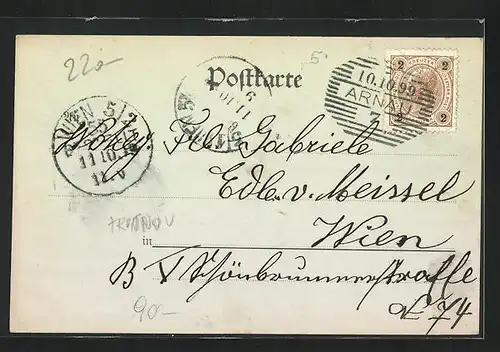 220-
5.
Postkarte
10.10.99
ARNAU
2 2
2 2
WIEN 5/2
11.10.
12.V
Frl. Gabriele
Edle v. Meissel
in Wien
TRUTNOV
B V Schönbrunnerstrasse
74
90-